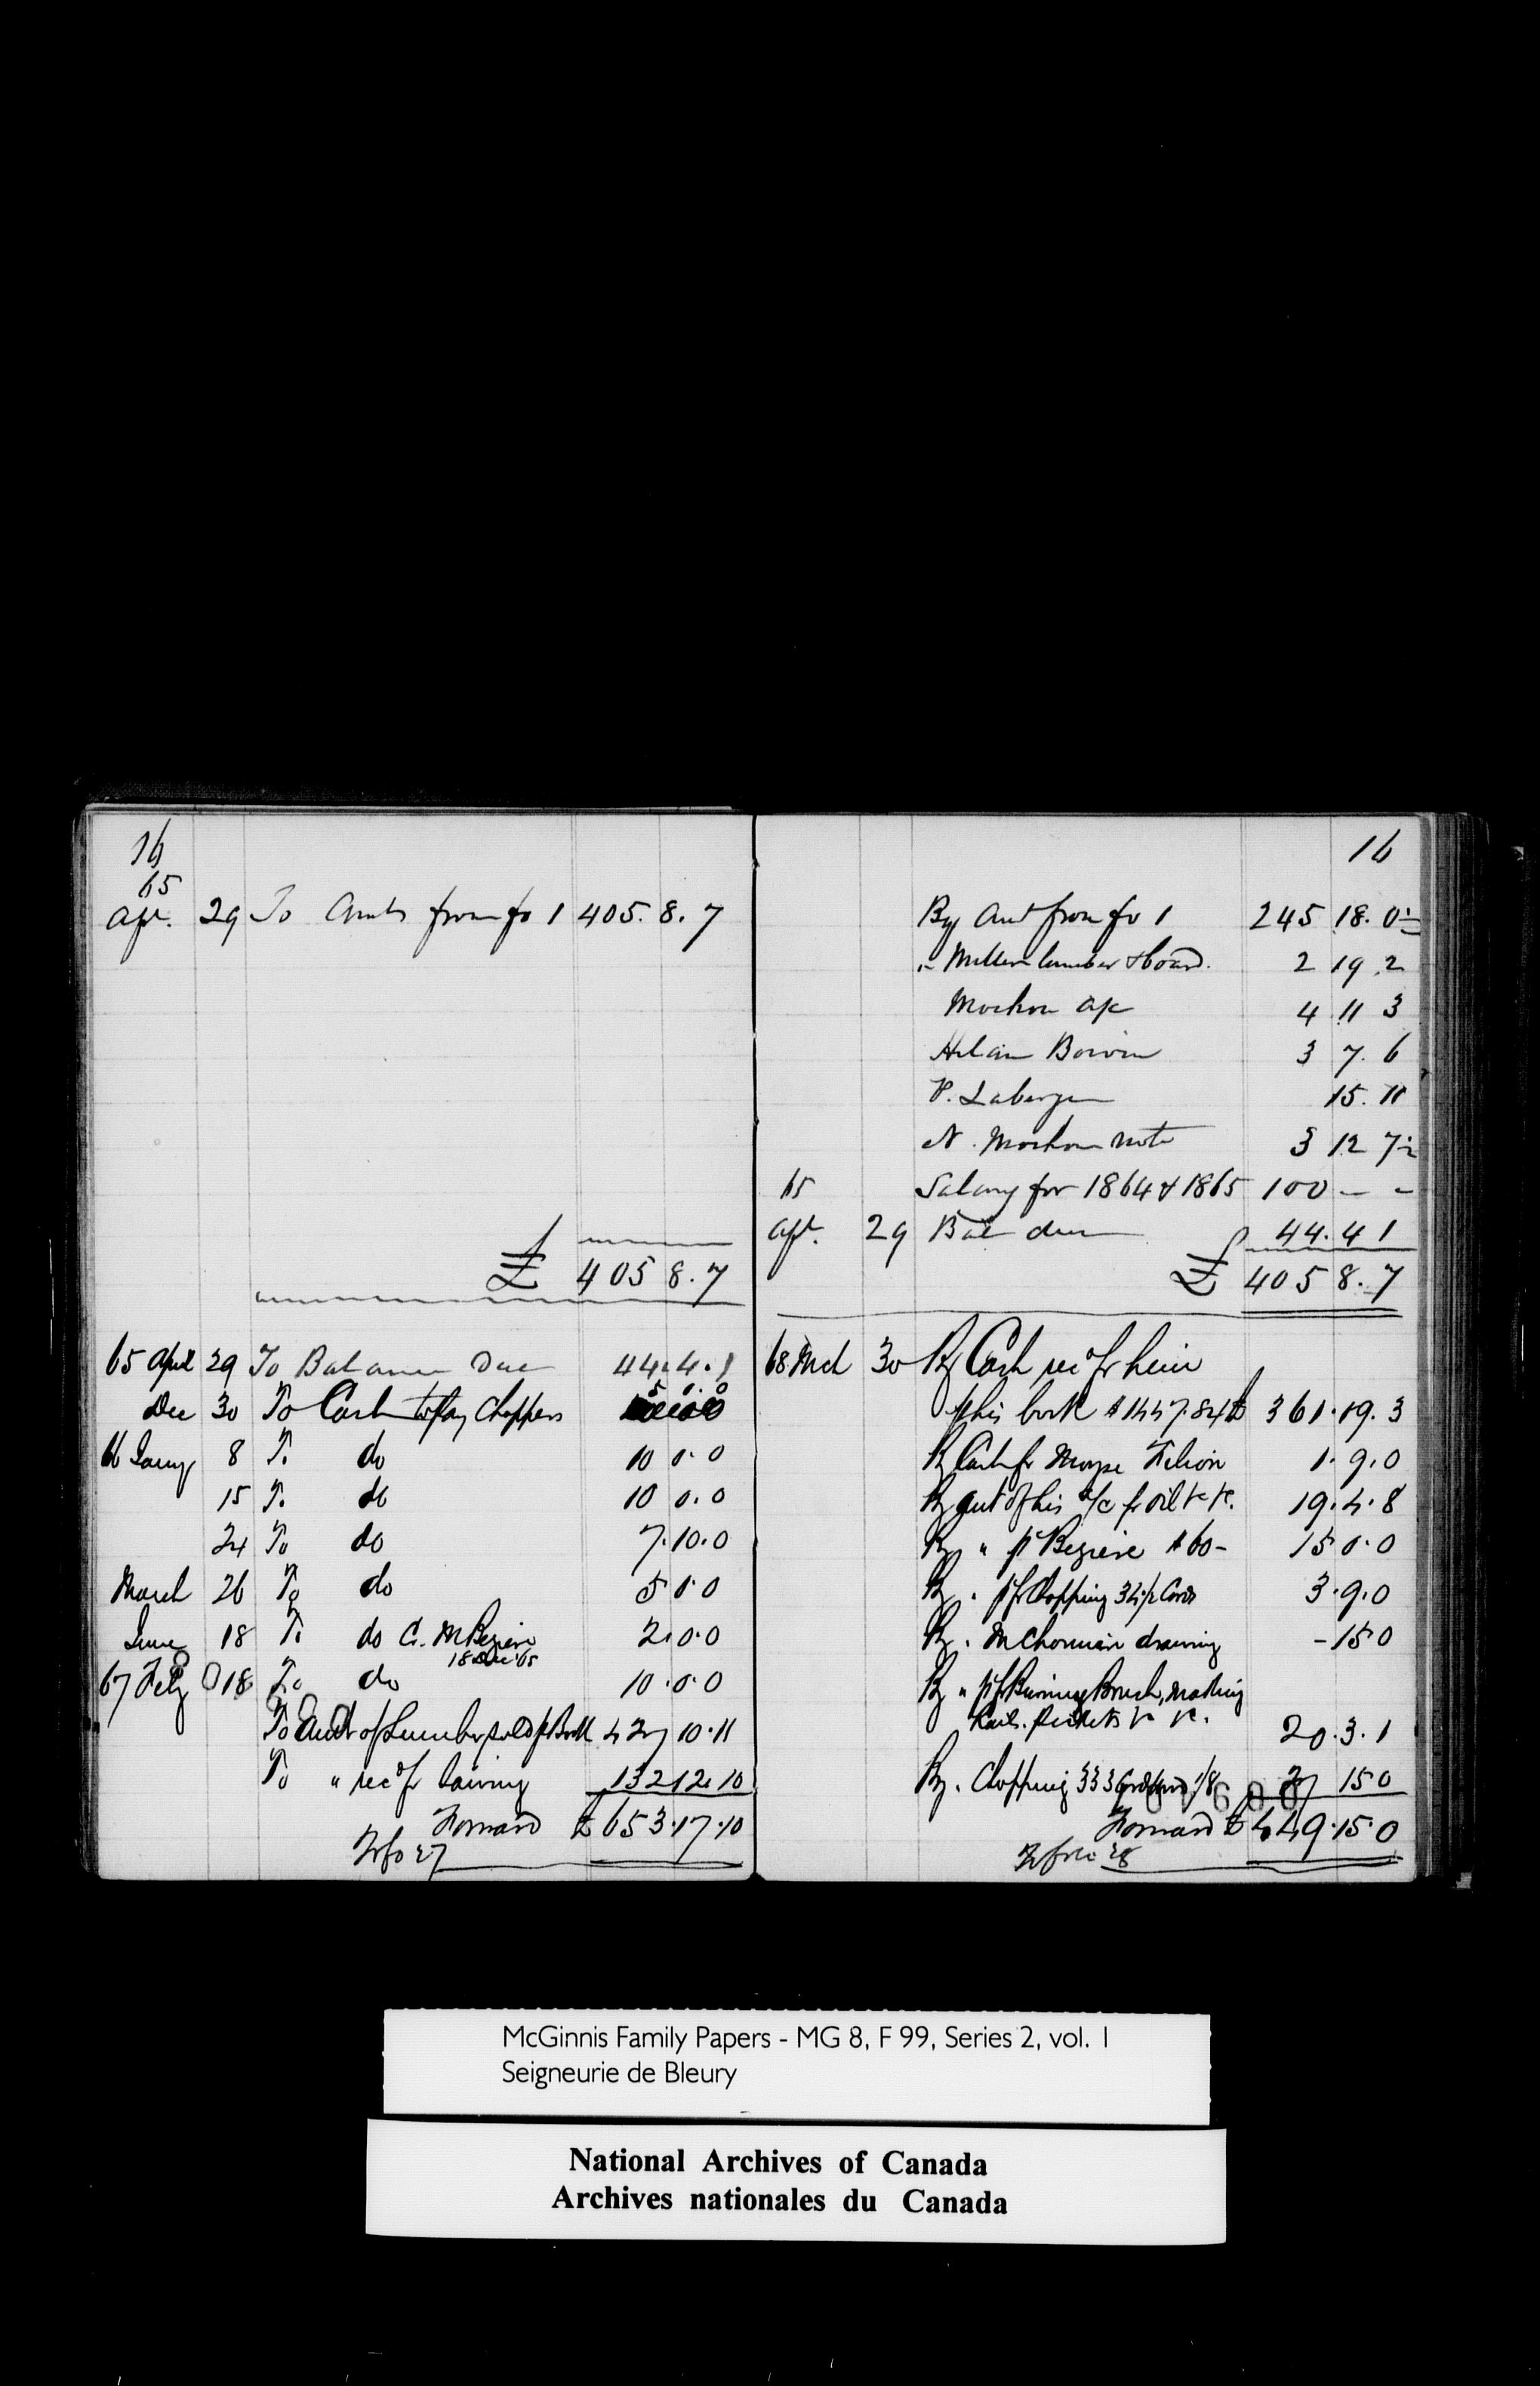 16
65
Apl. 29 To Amts from fo 1 405. 8. 7
£ 405 8. 7
65 April 29 To Balance Due 44. 4. 1
Dec 30 To Cash to pay Choppers 5 0. 0
66 Jany 8 To do 10 0. 0
15 To do 10 0. 0
24 To do 7. 10. 0
March 26 To do 5 0. 0
June 18 To do C. McBezeire 2. 0. 0
18 Dec '65
67 Feby 18 To do 10. 0. 0
To Amt of Lumber sold pr Book 427 10. 11
To " recd fr Sawing 132 12. 10
Forward £ 653. 17. 10
To fo 27
16
By Amt from fo 1 245 18. 0½
" lumber & board. 2 19. 2
Mochon a/c 4 11 3
Hilair Boivin 3 7. 6
P. Laberge 15. 11
N. Mochon note 3 12 7½
65 Salary for 1864 & 1865 100 – –
Apl. 29 Bal due 44. 4 1
£ 405 8. 7
68 Mch 30 By Cash recd fr him
p his book $1447.84 £ 361. 19. 3
By Cash fr Moyse Filion 1. 9. 0
By Amt of his a/c fr oil &c &c. 19. 4. 8
By " pd Bezeire $60– 15 0. 0
By " pd fr Chopping 34½ Cords 3. 9. 0
By " drawing – 15 0
By " pd fr Burning Brush, making
Rails. Pickets &c &c. 20. 3. 1
By " Chopping 333 Cords 1/8 27 15 0
Forward £ 449. 15. 0
To folio 28
McGinnis Family Papers - MG 8, F 99, Series 2, vol. 1
Seigneurie de Bleury
National Archives of Canada
Archives nationales du Canada